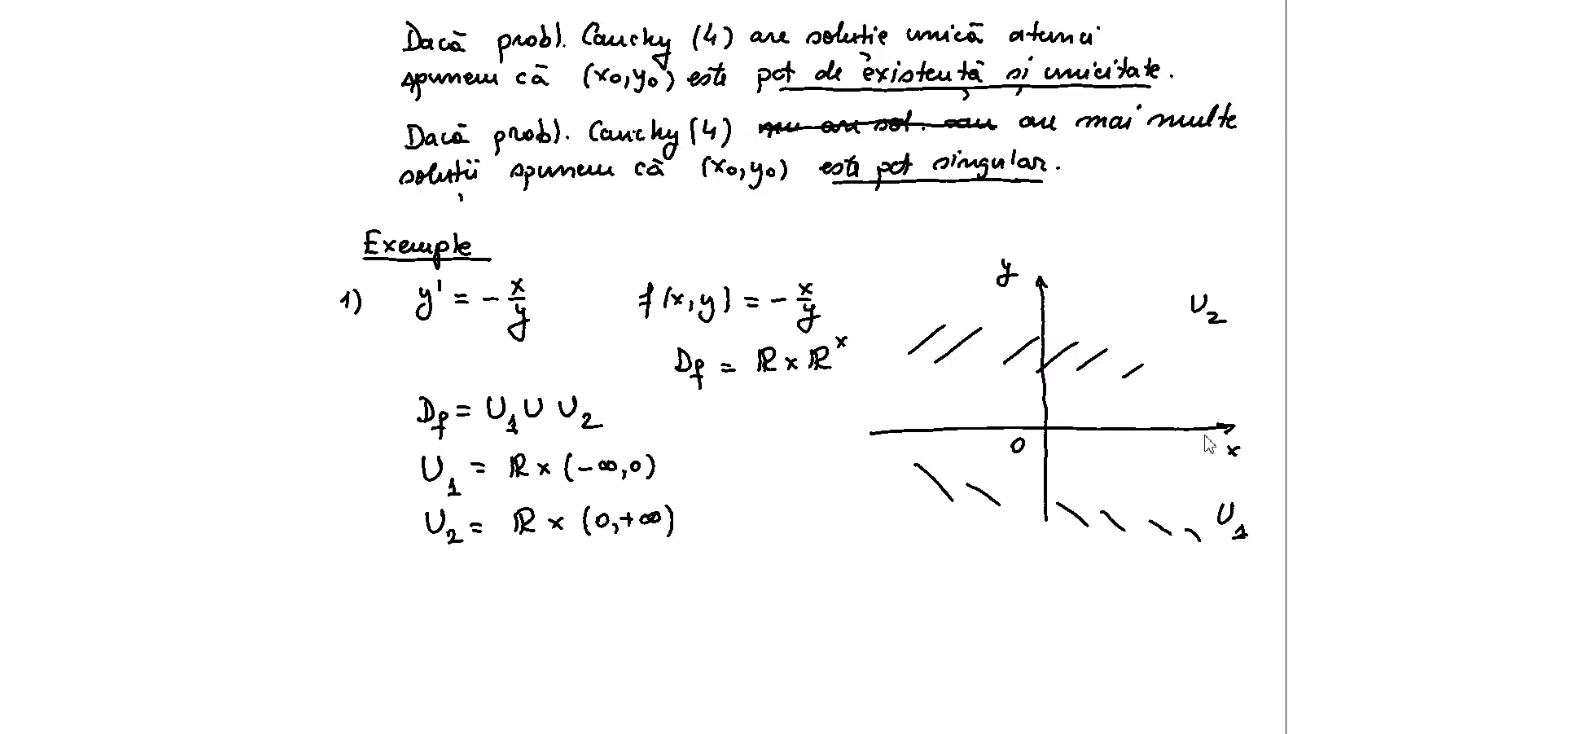 Dacă probl. Cauchy (4) are soluție unică atunci
spunem că (x₀,y₀) este pct de existență și unicitate.
Dacă probl. Cauchy (4) nu are sol. sau are mai multe
soluții spunem că (x₀,y₀) este pct singular.
Exemple
1) y' = - x/y f(x,y) = - x/y
D_f = ℝ × ℝ^x
D_f = U₁ ∪ U₂
U₁ = ℝ × (-∞,0)
U₂ = ℝ × (0,+∞)
y
U₂
0
x
U₁